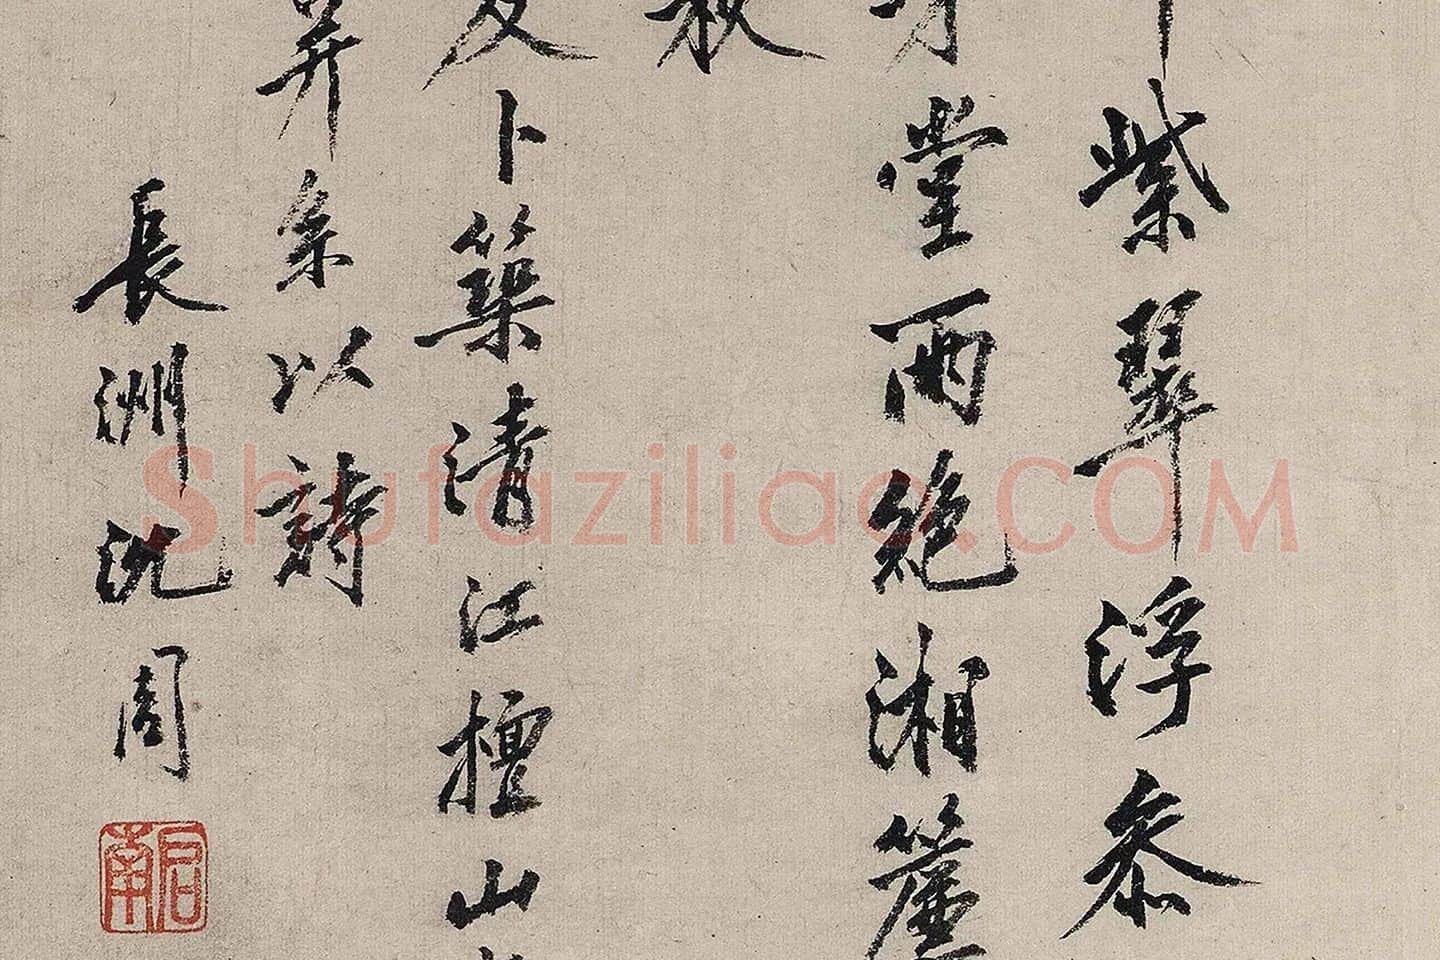 紫翠浮忝
堂雨絶湘簾
秋
友卜築清江檀山
算系以詩
長洲沈周
啟南
Shufaziliao.COM